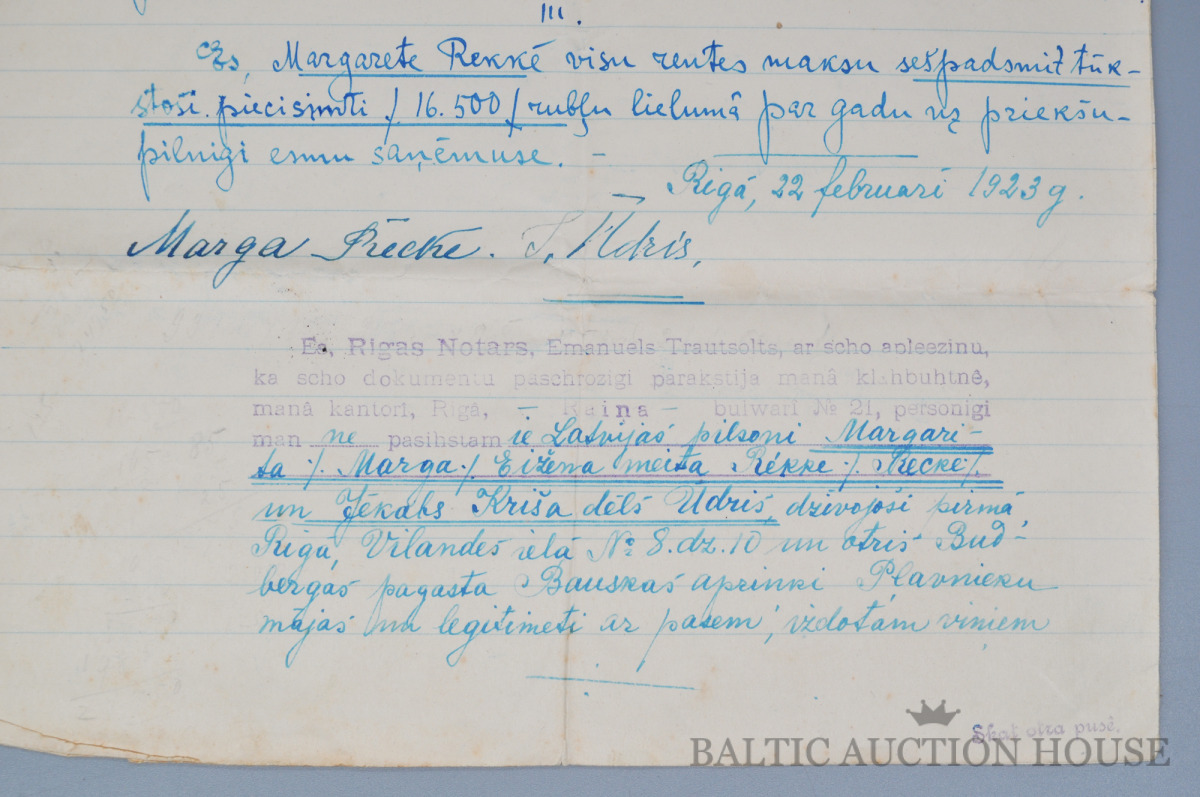 III.
Es, Margarete Rekkē visu rentes maksu sešpadsmit tūk-
stoši piecisimti /16.500/ rubļu lielumā par gadu uz priekšu-
pilnigi esmu saņēmuse. –
Rigā, 22 februarī 1923 g.
Marga Recke. J. Ūdris.
Es, Rigas Notars, Emanuels Trautsolts, ar scho apleezinu,
ka scho dokumentu paschrozigi parakstija manâ klahbuhtnê,
manâ kantorî, Rigâ, – Raiņa – bulwarî № 21, personigi
man ne pasihstamie Latvijas pilsoņi Margari-
ta ./. Marga ./. Eižena meita Rekke ./. Recke ./.
un Jēkabs Kriša dēls Ūdris, dzīvojoši pirmā,
Rigā, Vilandes ielā № 8. dz. 10 un otris Bud-
bergas pagasta Bauskas apriņķi Pļavnieku
mājās un legitimeti ar pasēm, izdotām viņiem
Skat otra pusē.
BALTIC AUCTION HOUSE